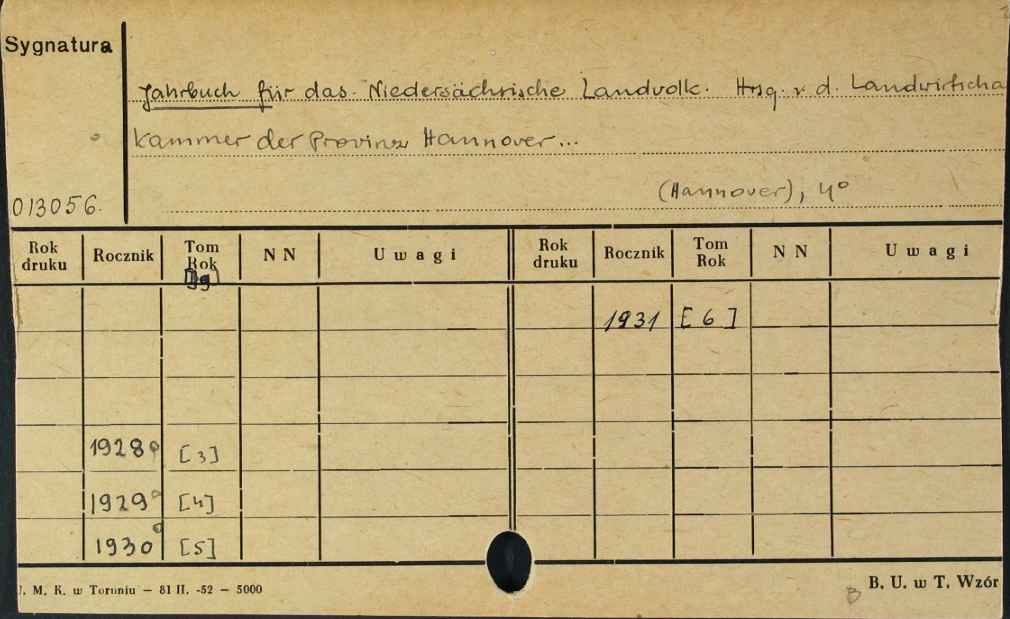 Sygnatura
Jahrbuch für das Niedersächsische Landvolk. Hrsg. v. d. Landwirtscha
Kammer der Provinz Hannover...
(Hannover), 4°
013056.
Rok druku Rocznik Tom Rok NN Uwagi Rok druku Rocznik Tom Rok NN Uwagi
Jg
1931 [6]
1928 [3]
1929 [4]
1930 [5]
U. M. K. w Toruniu – 81 II. -52 – 5000
B. U. w T. Wzór